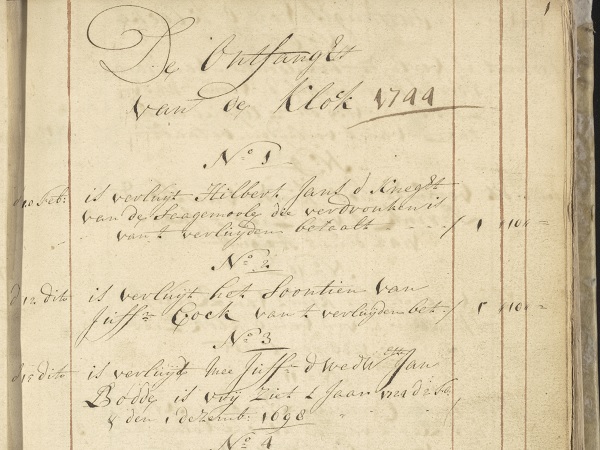 1
De Ontfangst
van de Klok 1744
No 1
d 10 Feb: is verluijt Hilbert Jans d Kneght
van de Saagemoole die verdronken is
van t verluijden betaalt f 1 " 10 " -
No 2
d 12 dito is verluijt het Soontien van
Juffr Cock van t verluijden bet: f 1 " 10 " -
No 3
d 15 dito is verluijt Mee Juffr d wedw Jan
Bodde is vrij Ziet t Jaar 1724 d 2 Feb
& den 1 dezemb: 1698
No 4